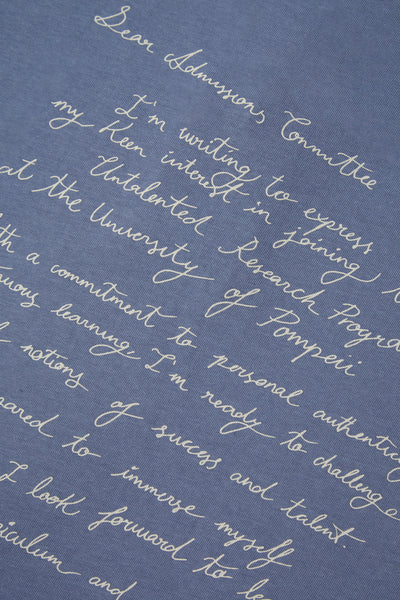 Dear Admissions Committee
I'm writing to express
my keen interest in joining
Untalented Research Progra
at the University of Pompeii
th a commitment to personal authenticity
uous learning, I'm ready to challenge
notions of success and talent.
ared to immerse myself
I look forward to le
iculum and